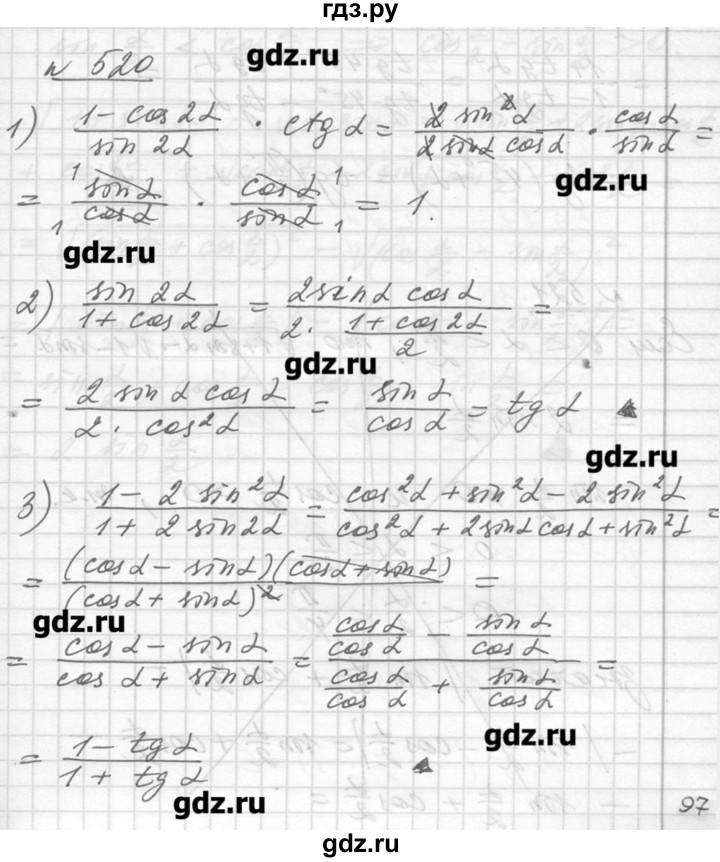 гдз.ру
№ 520
gdz.ru
1) (1 - cos 2α)/(sin 2α) · ctg α = (2 sin² α)/(2 sin α cos α) · (cos α)/(sin α) =
gdz.ru
= (sin α)/(cos α) · (cos α)/(sin α) = 1.
gdz.ru
2) (sin 2α)/(1 + cos 2α) = (2 sin α cos α)/(2 · (1 + cos 2α)/2) =
gdz.ru
= (2 sin α cos α)/(2 · cos² α) = (sin α)/(cos α) = tg α ▲
gdz.ru
3) (1 - 2 sin² α)/(1 + 2 sin 2α) = (cos² α + sin² α - 2 sin² α)/(cos² α + 2 sin α cos α + sin² α) =
= ((cos α - sin α)(cos α + sin α))/((cos α + sin α)²) =
gdz.ru
= (cos α - sin α)/(cos α + sin α) = ((cos α)/(cos α) - (sin α)/(cos α))/((cos α)/(cos α) + (sin α)/(cos α)) =
gdz.ru
= (1 - tg α)/(1 + tg α) ▲
gdz.ru
97
gdz.ru